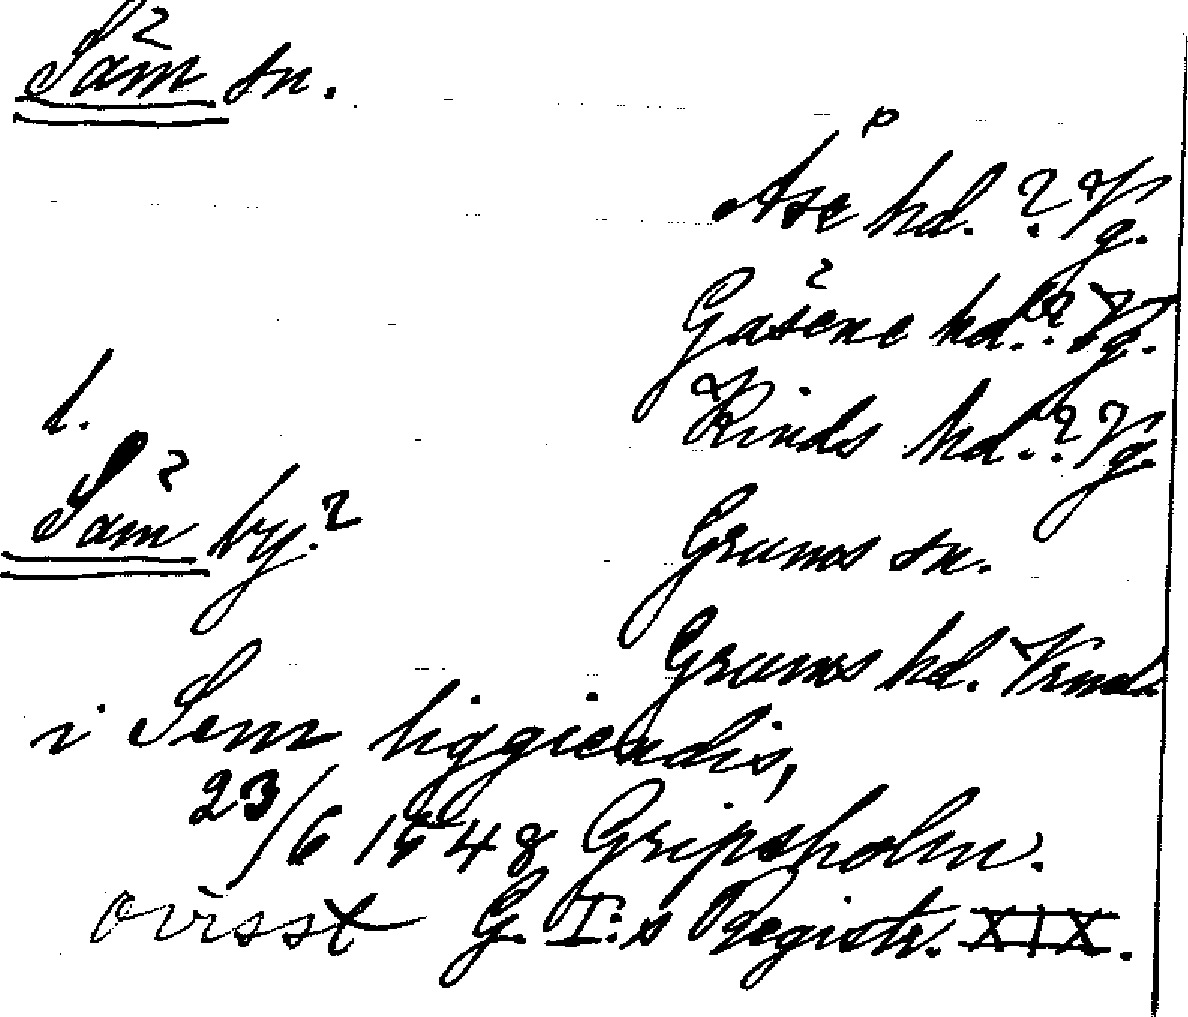 Säm? sn.
Åse hd. ? Vg.
Gäsene hd. ? Vg.
Kinds hd. ? Vg.
l.
Säm? by?
Grums sn.
Grums hd. Vrmld
i Sem liggiendis,
23/6 1548 Gripsholm.
ovisst G. I:s Registr. XIX.